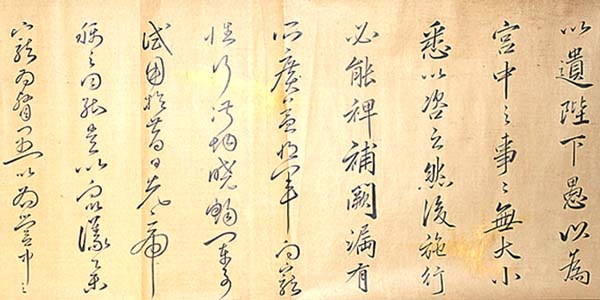 以遺陛下愚以為
宮中之事〻無大小
悉以咨之然後施行
必能裨補闕漏有
所廣益將軍向寵
性行淑均曉暢軍事
試用於昔日先帝
稱之曰能是以眾議舉
寵為督愚以為營中之